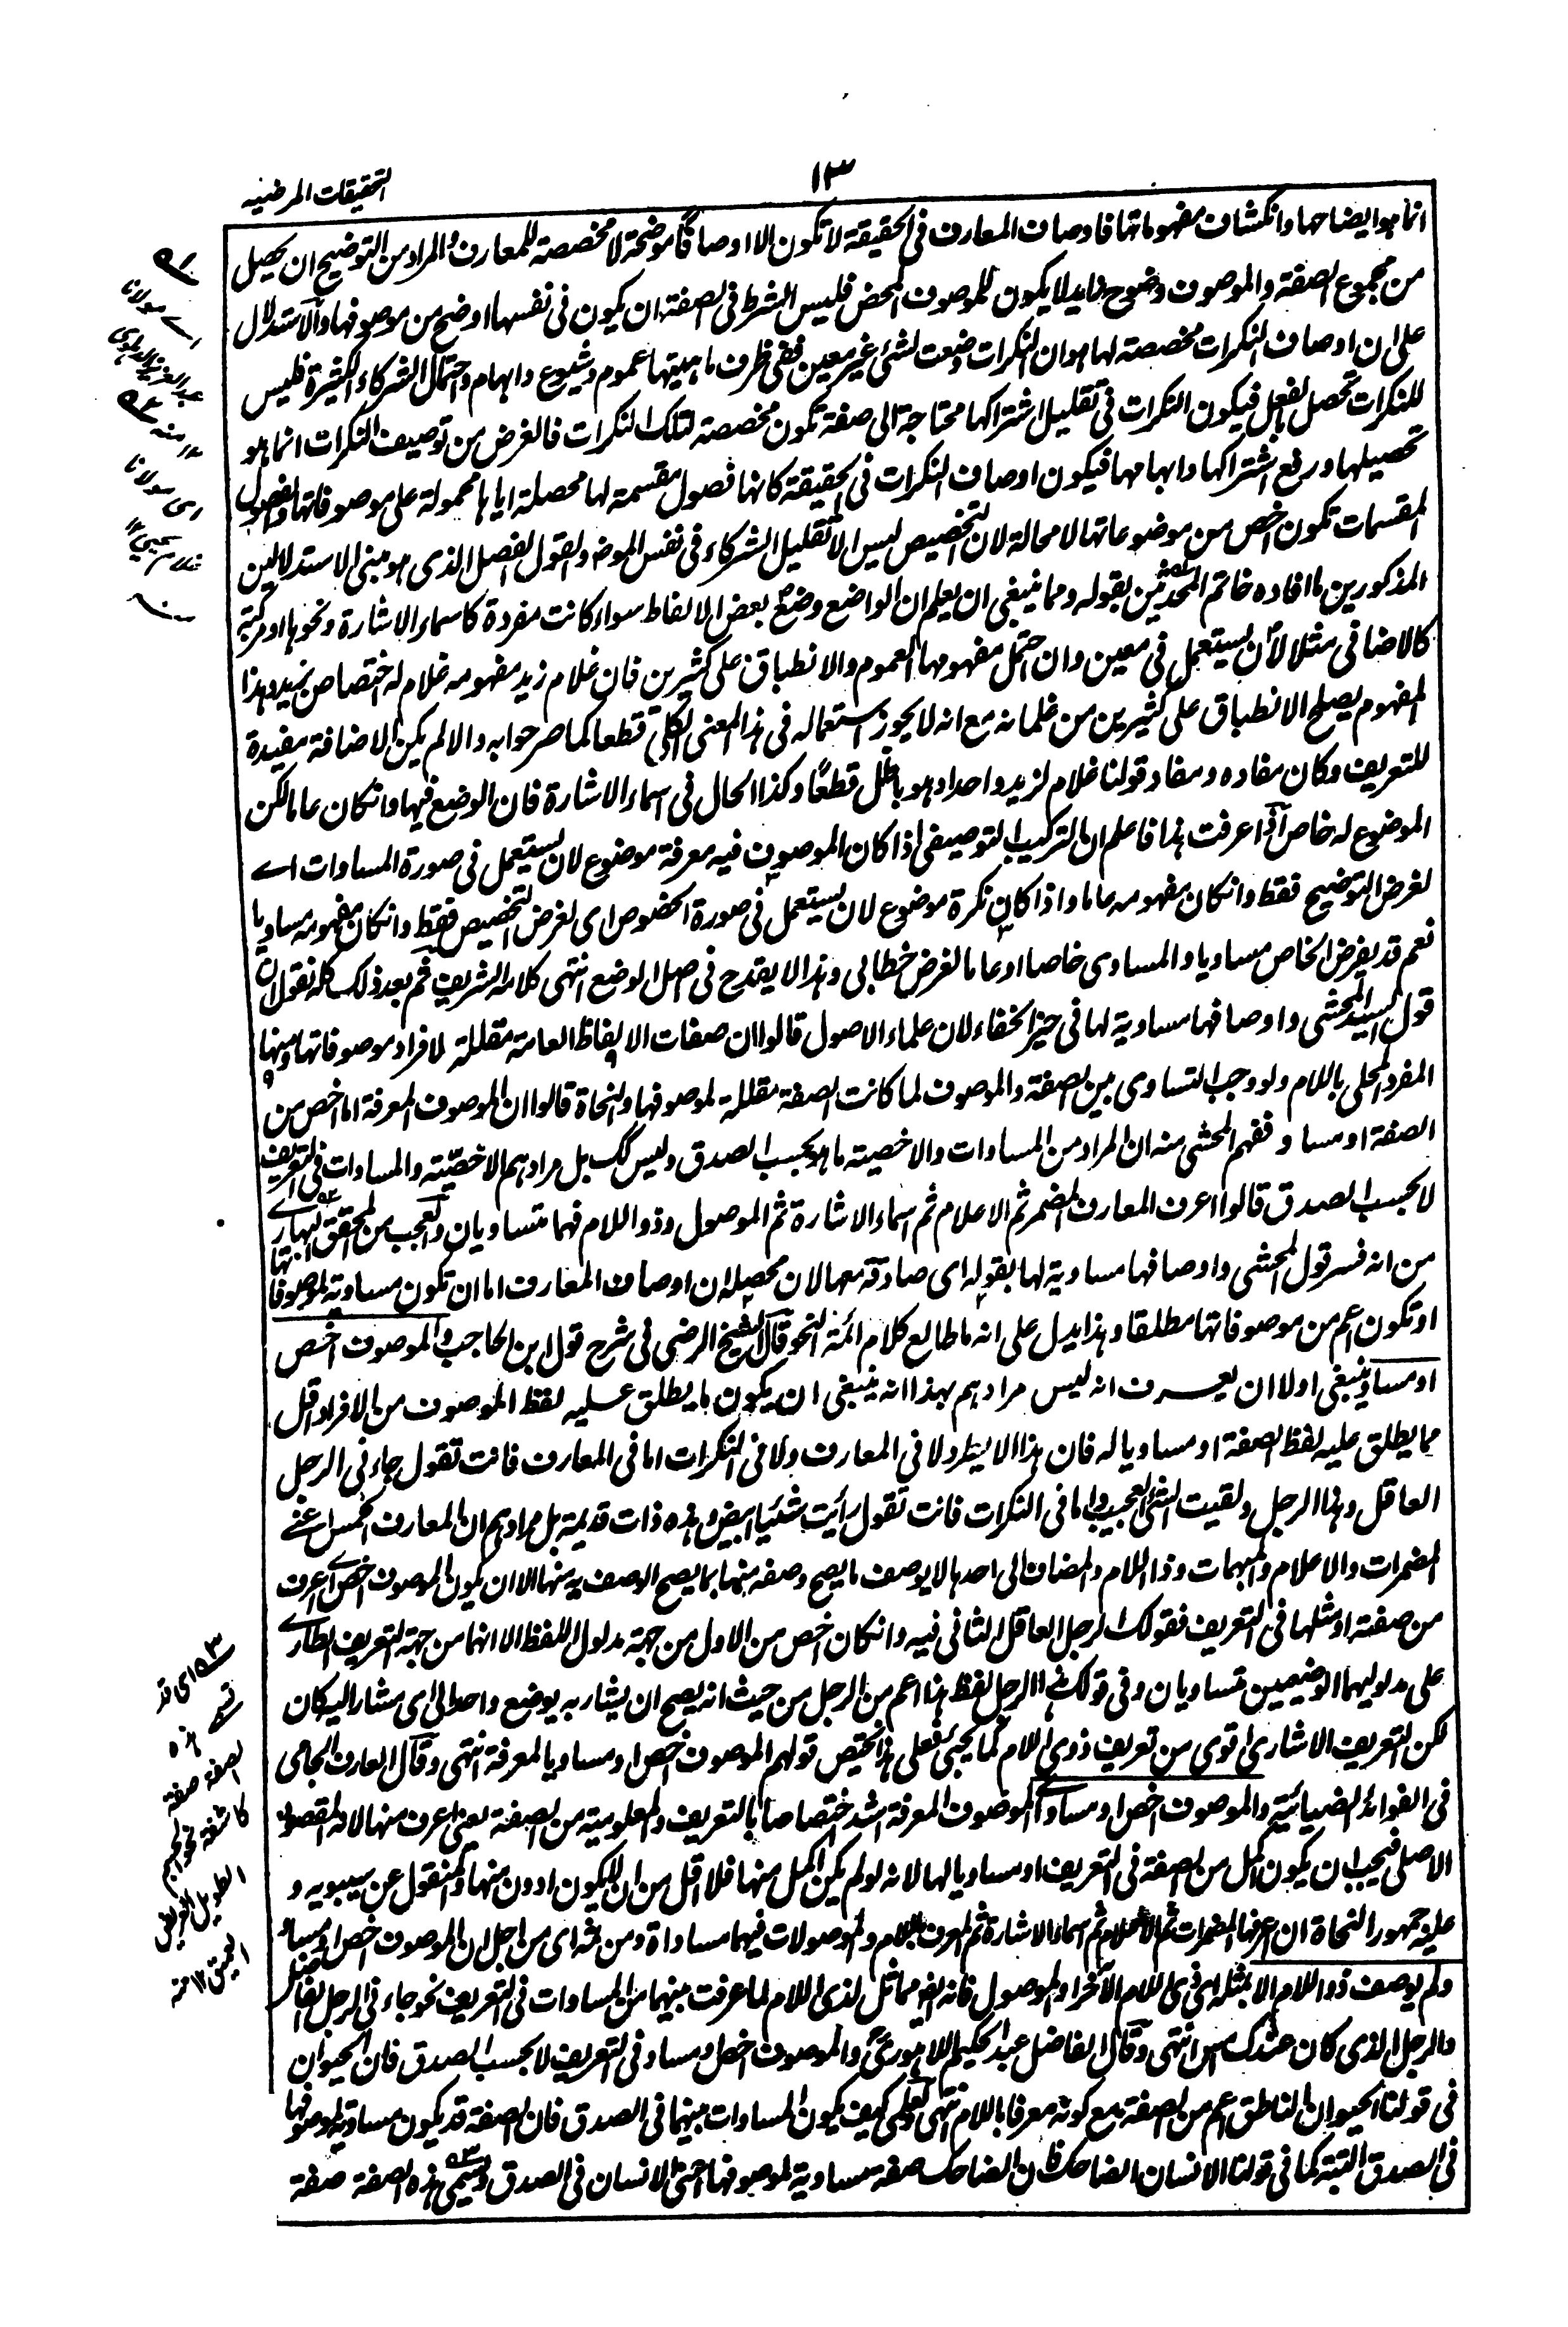 ١٣
التحقيقات المرضيه
انما هو ايضاحها وانكشاف مفهوماتها فاوصاف المعارف في الحقيقة لا تكون الا اوصافا موضحة لا مخصصة للمعارف والمراد من التوضيح ان يحصل
من مجموع الصفة والموصوف وضوح زايد لا يكون للموصوف المحض فليس الشرط في الصفة ان يكون في نفسها اوضح من موصوفها والاستدلال
على ان اوصاف النكرات مخصصة لها هو ان النكرات وضعت لشئ غير معين ففي ظرف ماهيتها عموم وشيوع وابهام واحتمال الشركاء الكثيرة فليس
للنكرات تحصل بالفعل فيكون النكرات في تقليل اشتراكها محتاجة الى صفة تكون مخصصة لتلك النكرات فالغرض من توصيف النكرات انما هو
تحصيلها ورفع اشتراكها وابهامها فيكون اوصاف النكرات في الحقيقة كانها فصول مقسمة لها محصلة اياها محمولة على موصوفاتها والفصول
المقسمات تكون اخص من موضوعاتها لا محالة لان التخصيص ليس الا تقليل الشركاء في نفس الموضوع والقول الفصل الذى هو مبنى الاستدلالين
المذكورين ما افاده خاتم المحدثين بقوله ومما ينبغى ان يعلم ان الواضع وضع بعض الالفاظ سواء كانت مفردة كاسماء الاشارة ونحوها او مركبة
كالاضافى مثلا لأن يستعمل في معين وان احتمل مفهومها العموم والانطباق على كثيرين فان غلام زيد مفهومه غلام له اختصاص بزيد وهذا
المفهوم يصلح الانطباق على كثيرين من غلمانه مع انه لا يجوز استعماله في هذا المعنى الكلى قطعا كما صرحوا به والا لم يكن الاضافة مفيدة
للتعريف وكان مفاده ومفاد قولنا غلام لزيد واحدا وهو باطل قطعًا وكذا الحال في اسماء الاشارة فان الوضع فيها وانكان عاما لكن
الموضوع له خاص اذا عرفت هذا فاعلم ان التركيب التوصيفى اذا كان الموصوف فيه معرفة موضوع لان يستعمل في صورة المساوات اے
لغرض التوضيح فقط وانكان مفهومه عاما واذا كان نكرة موضوع لان يستعمل في صورة الخصوص اى لغرض التخصيص فقط وانكان مفهومه مساويا
نعم قد يفرض الخاص مساويا والمساوى خاصا او عاما لغرض خطابى وهذا لا يقدح في اصل الوضع انتهى كلامه الشريف ثم بعد ذلك كله نقول ان
قول السيد المحشى واوصافها مساوية لها في حيز الخفاء لان علماء الاصول قالوا ان صفات الالفاظ العامة مقللة لافراد موصوفاتها ومنها
المفرد المحلى باللام ولو وجب التساوى بين الصفة والموصوف لما كانت الصفة مقللة لموصوفها والنحاة قالوا ان الموصوف المعرفة اما اخص من
الصفة او مساو ففهم المحشى منه ان المراد من المساوات والاخصية ما هو بحسب الصدق وليس كك بل مرادهم الاخصّية والمساوات في التعريف
لا بحسب الصدق قالوا اعرف المعارف المضمر ثم الاعلام ثم اسماء الاشارة ثم الموصول وذو اللام فهما متساويان والعجب من المحقق البهارے
من انه فسر قول المحشى واوصافها مساوية لها بقوله اى صادقة معها لان محصله ان اوصاف المعارف اما ان تكون مساوية لموصوفاتها
او تكون اعم من موصوفاتها مطلقا وهذا يدل على انه ما طالع كلام ائمة النحو قال الشيخ الرضى في شرح قول ابن الحاجب والموصوف اخص
او مساو ينبغى اولا ان يعرف انه ليس مرادهم بهذا انه ينبغى ان يكون ما يطلق عليه لفظ الموصوف من الافراد اقل
مما يطلق عليه لفظ الصفة او مساويا له فان هذا لا يطرد لا في المعارف ولا في النكرات اما في المعارف فانت تقول جاءنى الرجل
العاقل وهذا الرجل ولقيت الشئ العجيب واما في النكرات فانت تقول رأيت شئيا ابيض وهذه ذات قديمة بل مرادهم ان المعارف الخمس اعنے
المضمرات والاعلام والمبهمات وذا اللام والمضاف الى احدها لا يوصف ما يصح وصفه منها بما يصح الوصف به منها الا ان يكون الموصوف اخص اے اعرف
من صفته او مثلها في التعريف فقولك الرجل العاقل الثانى فيه وانكان اخص من الاول من جهة مدلول اللفظ الا انهما من جهة التعريف الطارے
على مدلوليهما الوضيعيين متساويان وفى قولك هذا الرجل لفظ هذا اعم من الرجل من حيث انه يصح ان يشار به بوضع واحد الى اى مشار اليه كان
لكن التعريف الاشارى اقوى من تعريف ذوى اللام كما يجئ فعلى هذا يختص قولهم الموصوف اخص او مساو بالمعرفة انتهى وقال العارف الجامى
في الفوائد الضيائية والموصوف اخص او مساو اے الموصوف المعرفة اشد اختصاصا بالتعريف والمعلومية من الصفة يعنى اعرف منها لانه المقصود
الاصلى فيجب ان يكون اكمل من الصفة في التعريف او مساويا لها لانه لو لم يكن اكمل منها فلا اقل من ان لا يكون ادون منها والمنقول عن سيبويه و
عليه جمهور النحاة ان اعرفها المضمرات ثم الاعلام ثم اسماء الاشارة ثم المعرف باللام والموصولات فيهما مساواة ومن ثمه اى من اجل ان الموصوف اخص او مساو
ولم يوصف ذو اللام الا بمثله اى ذى اللام الآخر او الموصول فانه ايضا مماثل لذى اللام لما عرفت بينهما من المساوات في التعريف نحو جاءنى الرجل الفاضل
والرجل الذى كان عندك امس انتهى وقال الفاضل عبد الحكيم اللاهورى والموصوف اخص او مساو في التعريف لا بحسب الصدق فان الحيوان
في قولنا الحيوان الناطق اعم من الصفة مع كونه معرفا باللام انتهى ولعلى كيف يكون المساوات بينهما في الصدق فان الصفة قد يكون مساوية لموصوفها
في الصدق البتة كما في قولنا الانسان الضاحك فان الضاحك صفة مساوية لموصوفها اعنى الانسان في الصدق وتسمى هذه الصفة صفة
اے مولانا
عبد العزيز الدهلوى
١٢ منه
اى مولانا
غلام يحيى ١٢
منه
اى قد
الصفة صفة
كاشفة نحو الجسم
الطويل العريض
العميق ١٢ منه